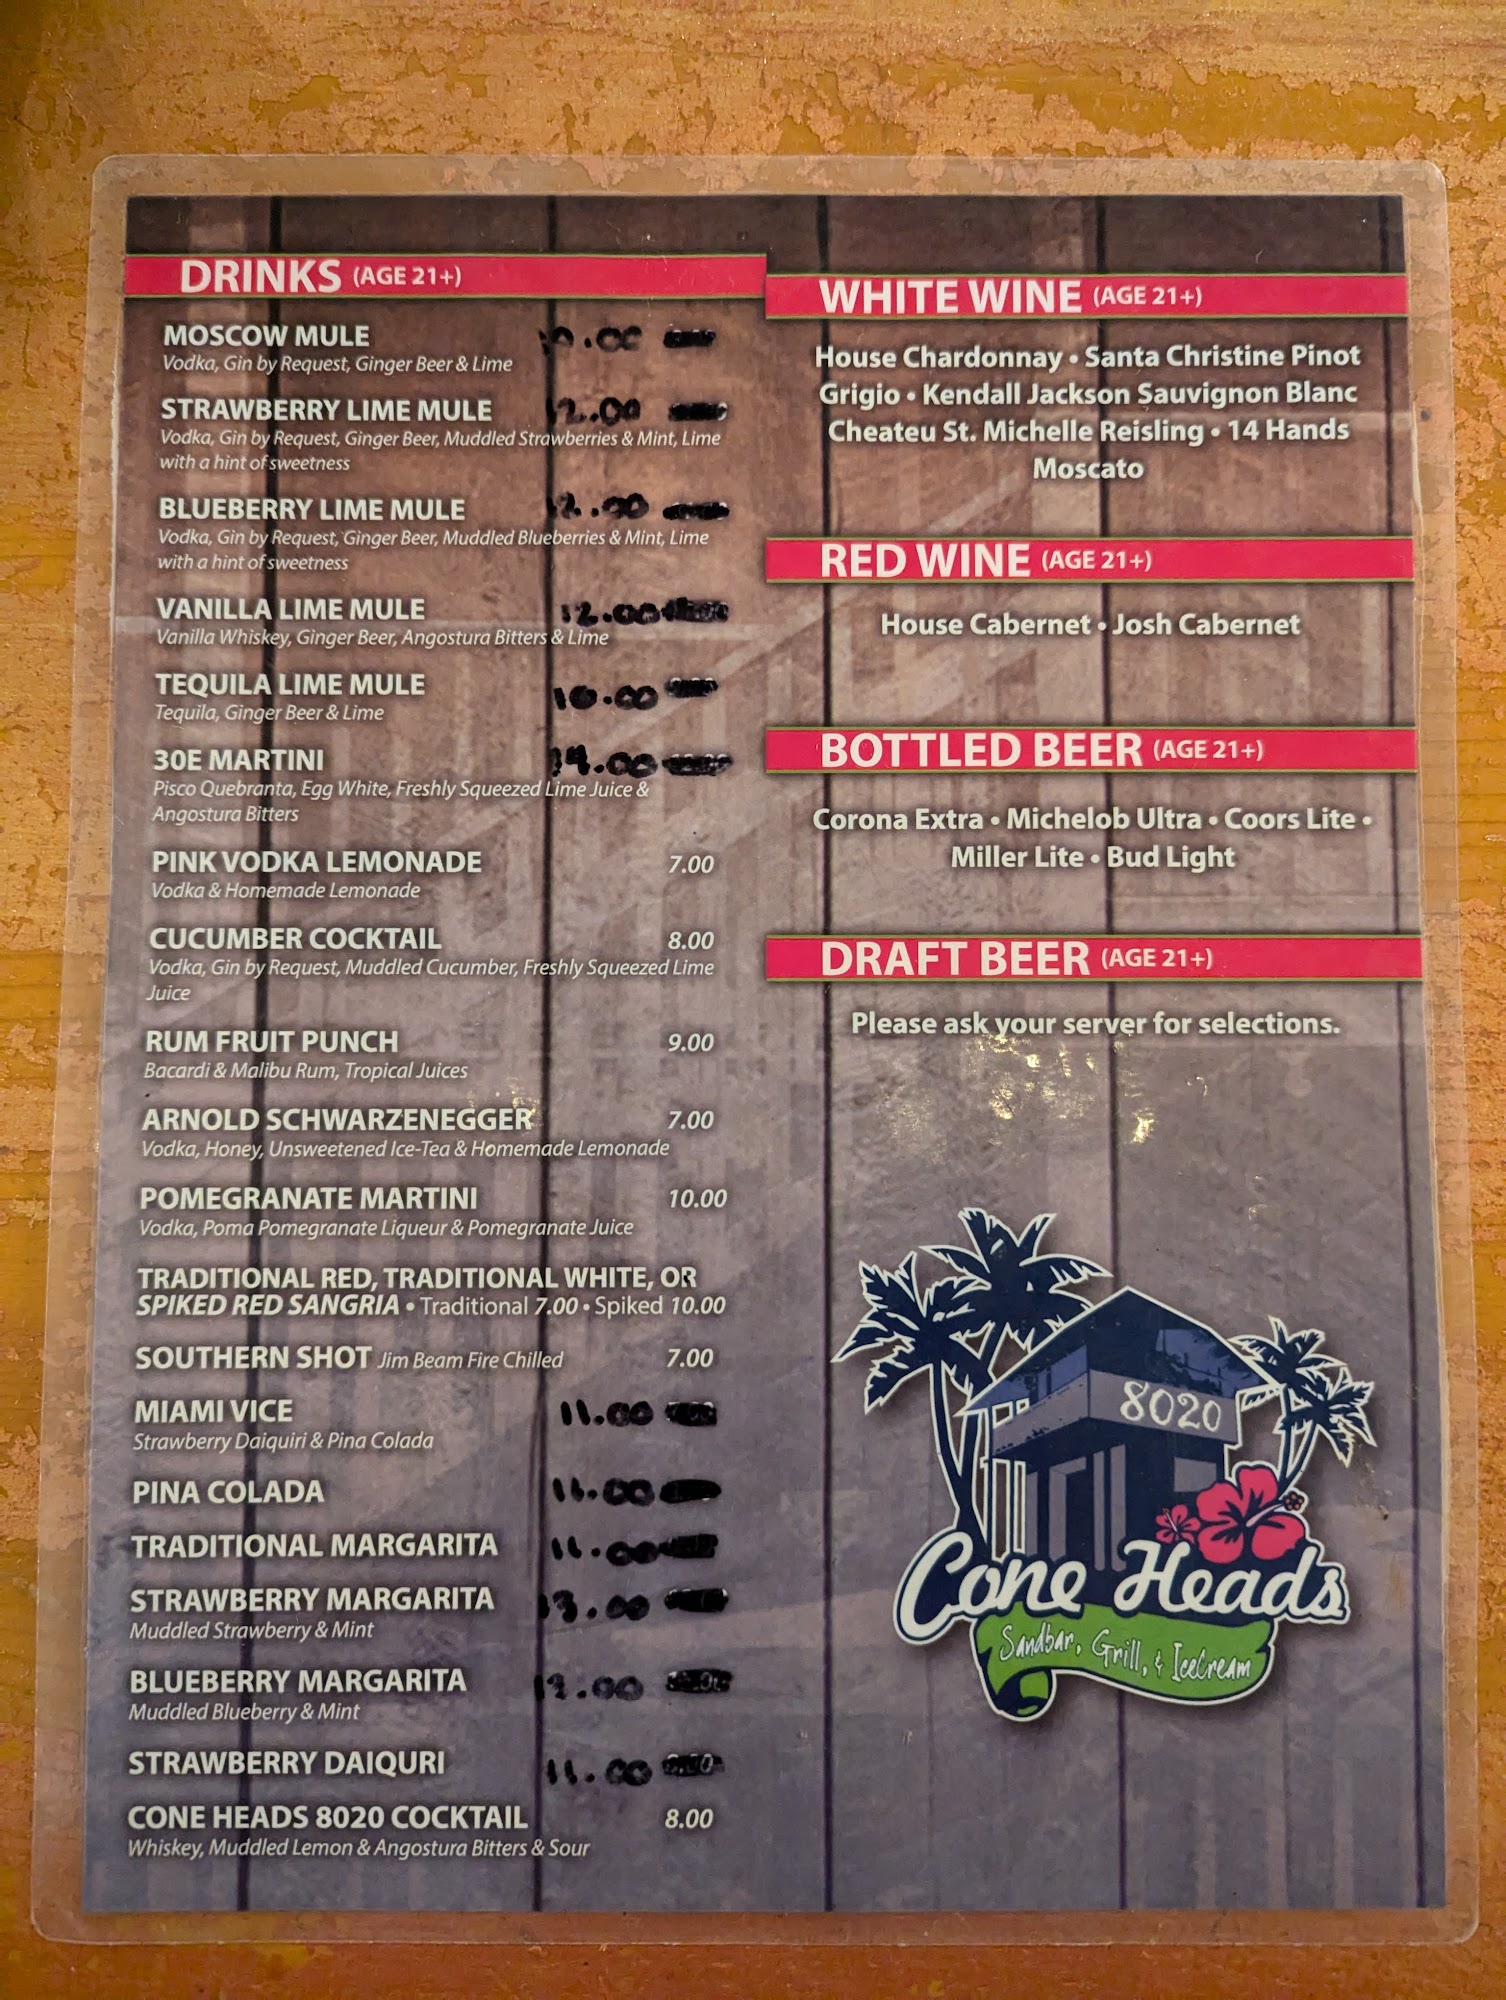 DRINKS (AGE 21+)
MOSCOW MULE 10.00
Vodka, Gin by Request, Ginger Beer & Lime
STRAWBERRY LIME MULE 12.00
Vodka, Gin by Request, Ginger Beer, Muddled Strawberries & Mint, Lime
with a hint of sweetness
BLUEBERRY LIME MULE 12.00
Vodka, Gin by Request, Ginger Beer, Muddled Blueberries & Mint, Lime
with a hint of sweetness
VANILLA LIME MULE 12.00
Vanilla Whiskey, Ginger Beer, Angostura Bitters & Lime
TEQUILA LIME MULE 10.00
Tequila, Ginger Beer & Lime
30E MARTINI 14.00
Pisco Quebranta, Egg White, Freshly Squeezed Lime Juice &
Angostura Bitters
PINK VODKA LEMONADE 7.00
Vodka & Homemade Lemonade
CUCUMBER COCKTAIL 8.00
Vodka, Gin by Request, Muddled Cucumber, Freshly Squeezed Lime
Juice
RUM FRUIT PUNCH 9.00
Bacardi & Malibu Rum, Tropical Juices
ARNOLD SCHWARZENEGGER 7.00
Vodka, Honey, Unsweetened Ice-Tea & Homemade Lemonade
POMEGRANATE MARTINI 10.00
Vodka, Poma Pomegranate Liqueur & Pomegranate Juice
TRADITIONAL RED, TRADITIONAL WHITE, OR
SPIKED RED SANGRIA • Traditional 7.00 • Spiked 10.00
SOUTHERN SHOT Jim Beam Fire Chilled 7.00
MIAMI VICE 11.00
Strawberry Daiquiri & Pina Colada
PINA COLADA 11.00
TRADITIONAL MARGARITA 11.00
STRAWBERRY MARGARITA 13.00
Muddled Strawberry & Mint
BLUEBERRY MARGARITA
Muddled Blueberry & Mint
STRAWBERRY DAIQURI 11.00
CONE HEADS 8020 COCKTAIL 8.00
Whiskey, Muddled Lemon & Angostura Bitters & Sour
WHITE WINE (AGE 21+)
House Chardonnay • Santa Christine Pinot
Grigio • Kendall Jackson Sauvignon Blanc
Cheateu St. Michelle Reisling • 14 Hands
Moscato
RED WINE (AGE 21+)
House Cabernet • Josh Cabernet
BOTTLED BEER (AGE 21+)
Corona Extra • Michelob Ultra • Coors Lite •
Miller Lite • Bud Light
DRAFT BEER (AGE 21+)
Please ask your server for selections.
8020
Cone Heads
Sandbar, Grill, & IceCream